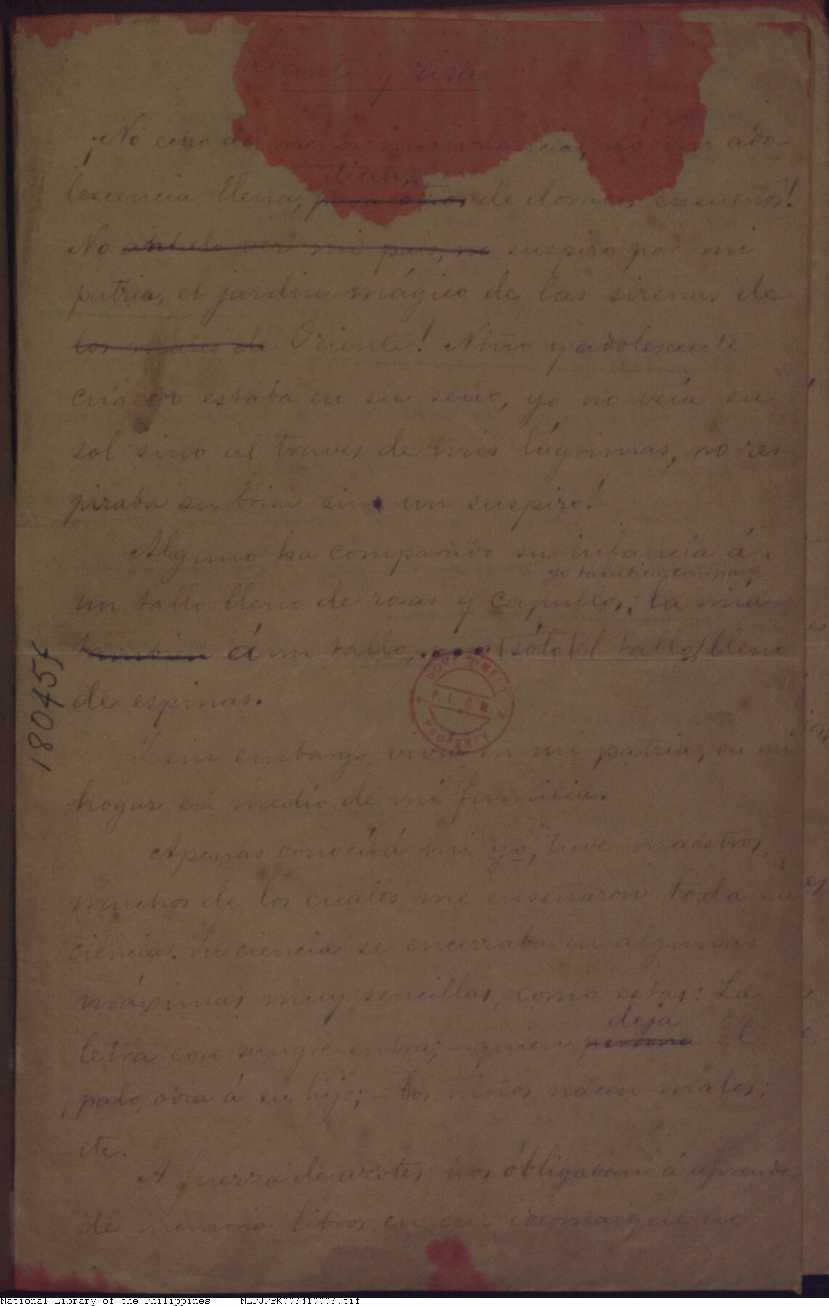 y risa
¡No de mi ado-
lescencia llena, dicen, para otros de dorados ensueños!
No anhelo ver mi país, no suspiro por mi
patria, el jardin mágico de las sirenas de
los mares de Oriente! Niño y adolescente
cuando estaba en su seno, yo no veía su
sol sino al traves de mis lágrimas, no res
piraba su brisa sino un suspiro!
Alguno ha comparado su infancia á
un tallo lleno de rosas y capullos; yo tambien comparo la mia
tambien á un tallo, .... sólo el tallo lleno
de espinas.
Y sin embargo vivía en mi patria, en mi
hogar en medio de mi familia.
Apenas conocí á mi yo, tuve maestros,
muchos de los cuales me enseñaron toda su
ciencia. Su ciencia se encerraba en algunas
máximas muy sencillas, como estas: La
letra con sangre entra; quien perdona deja el
palo, odia á su hijo; - los niños nacen malos;
etc.
A fuerza de azotes nos obligaban á aprender
de memoria libros en un idioma que no
180458
National Library of the Philippines